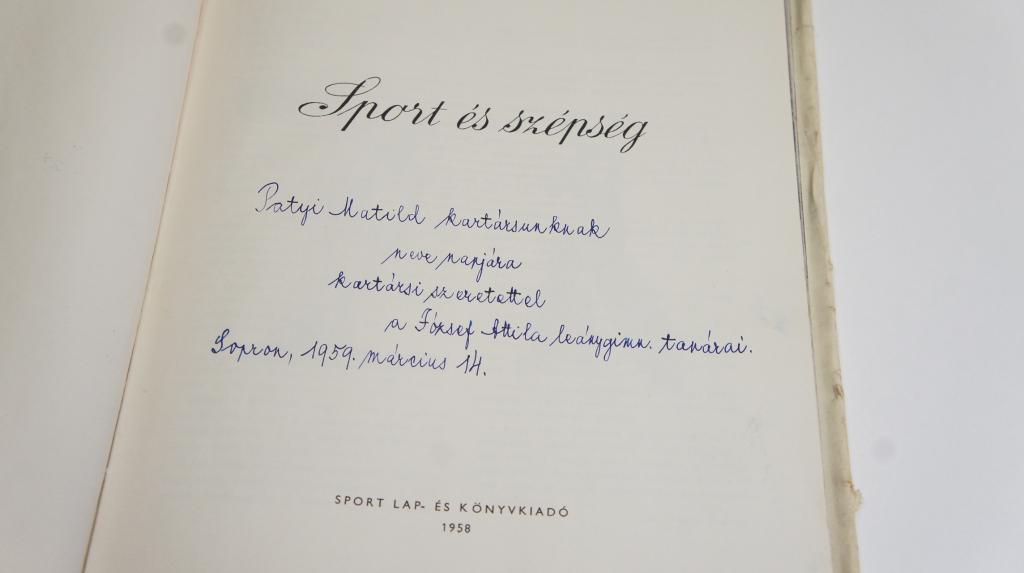 Sport és szépség
Patyi Matild kartársunknak
neve napjára
kartársi szeretettel
a József Attila leánygimn. tanárai.
Sopron, 1959. március 14.
SPORT LAP- ÉS KÖNYVKIADÓ
1958